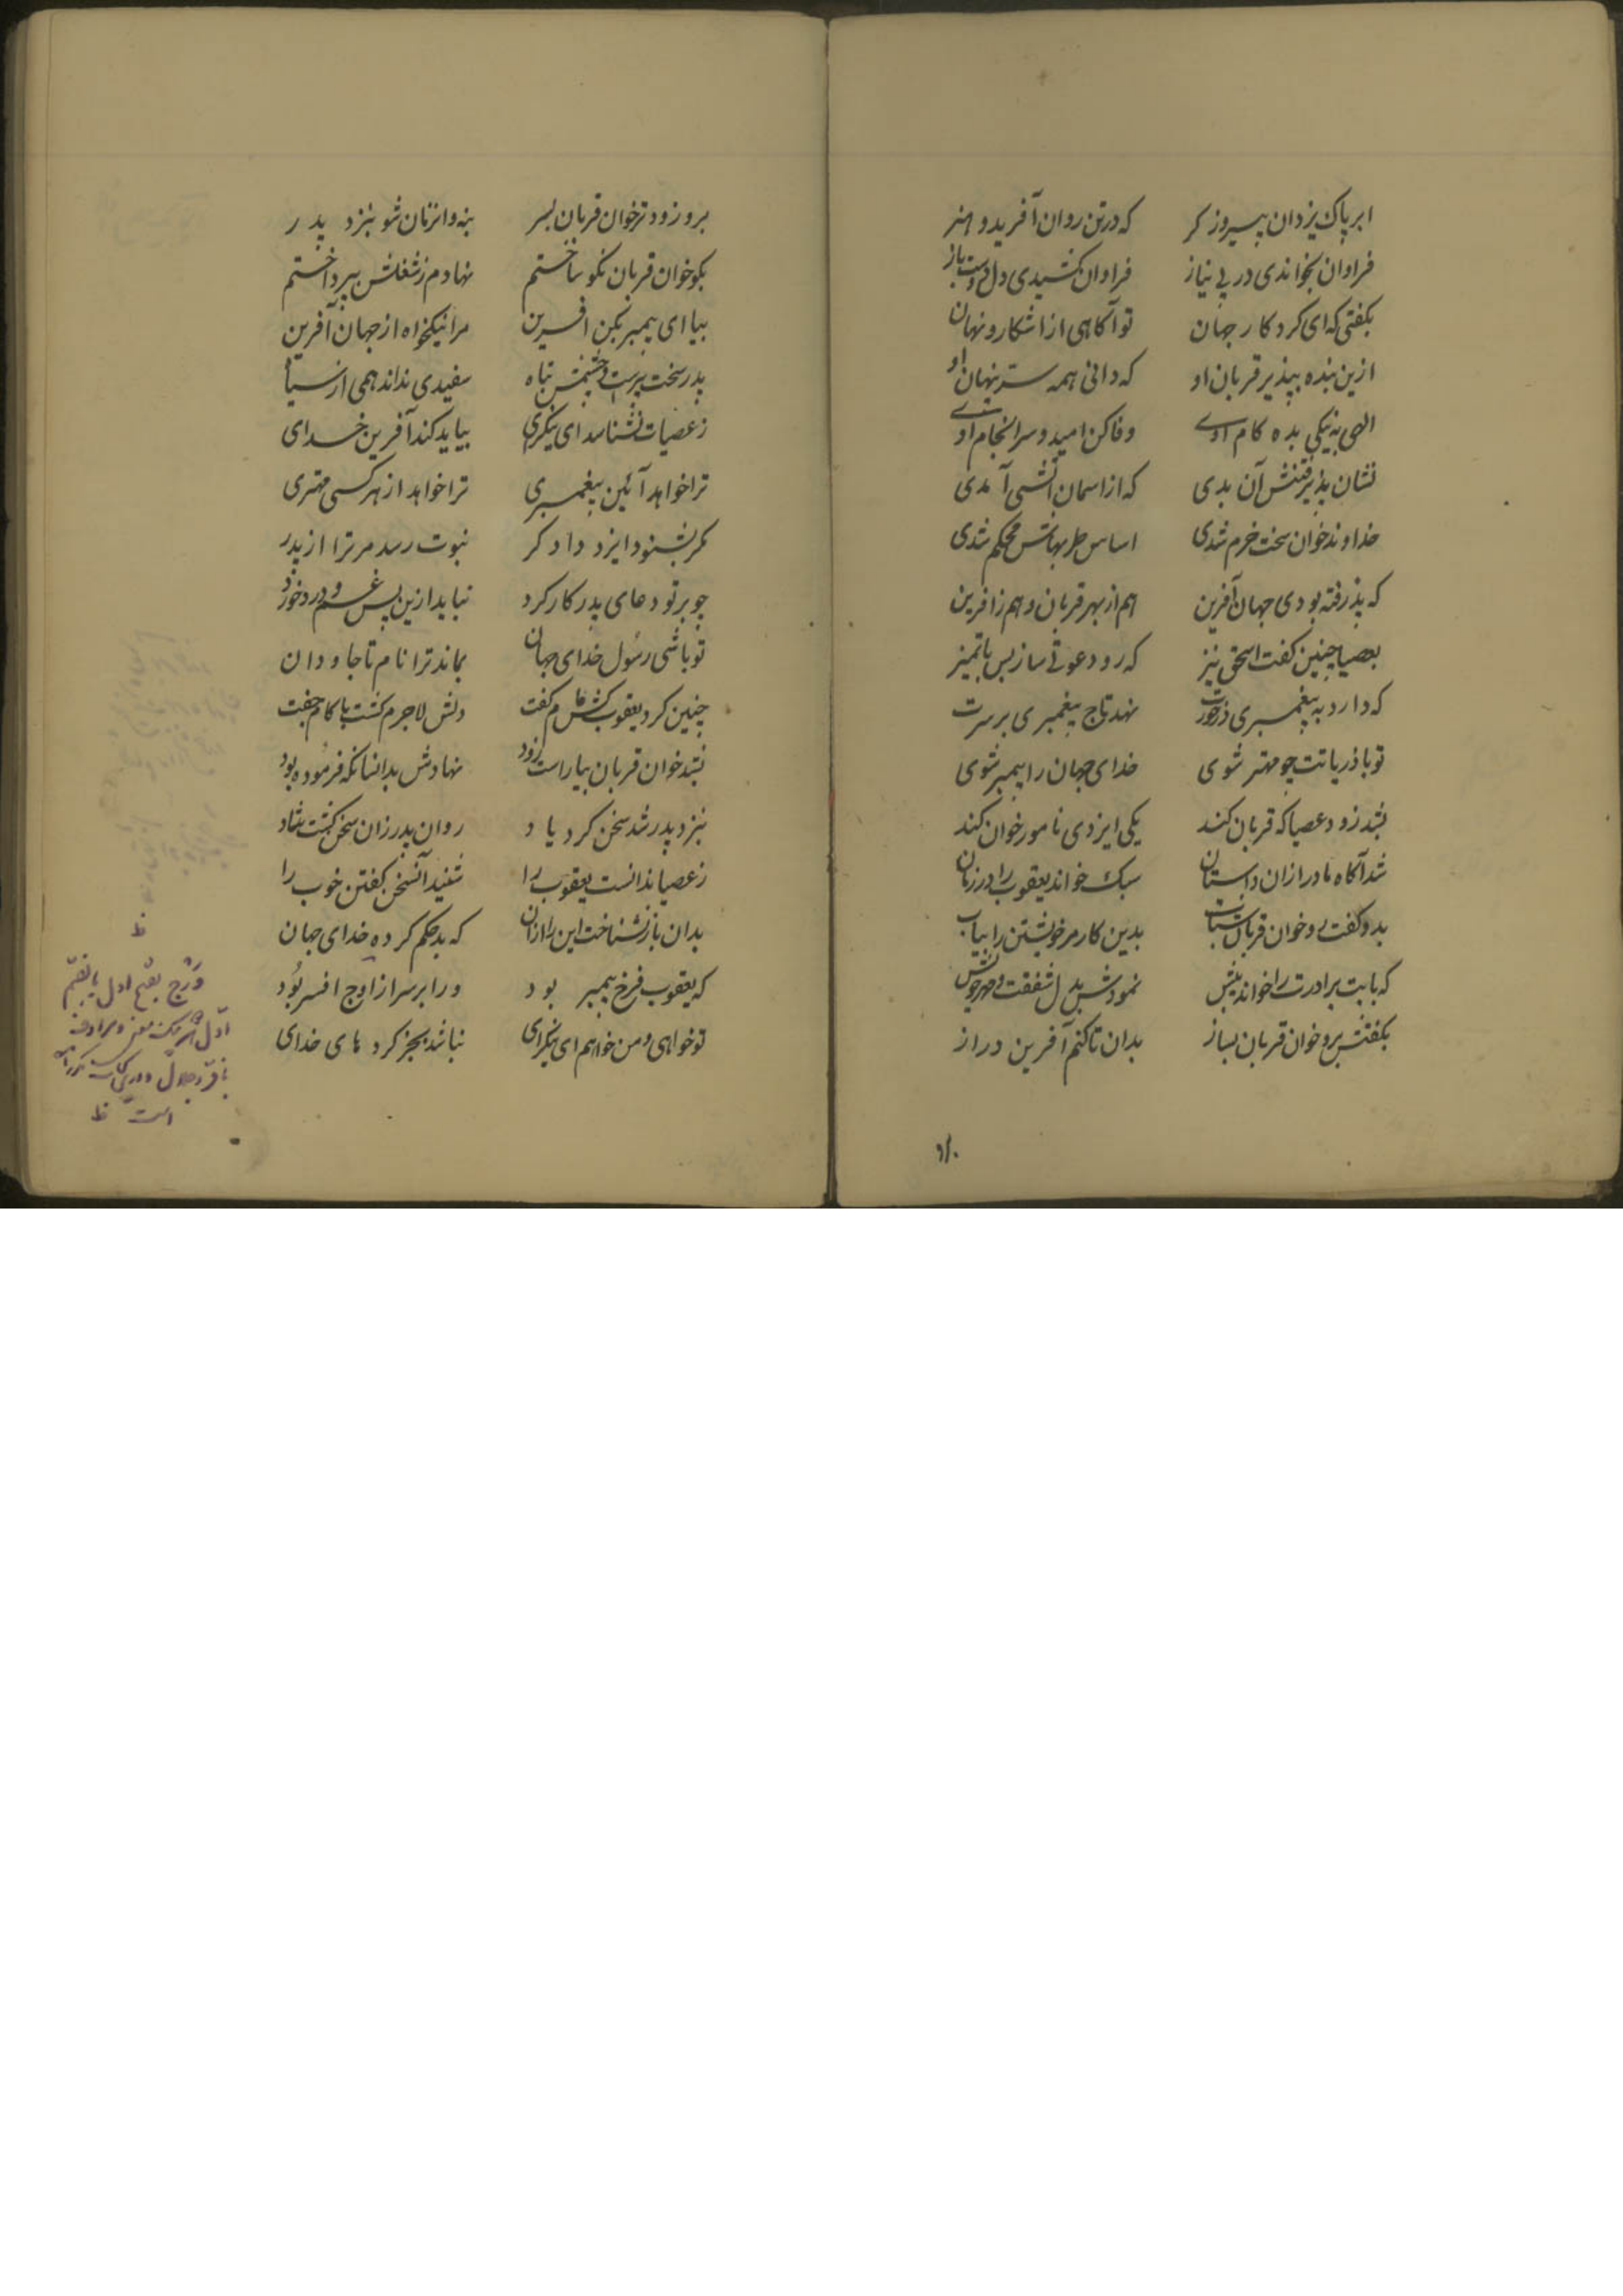 ابر پاک یزدان پیروز کر که در تن روان آفرید و هنر
فراوان بخواندی در بی نیاز فراوان کشیدی دل و دست باز
بکفتی که ای کردکار جهان تو آکاهی از اشکار و نهان
ازین بنده بپذیر قربان او که دانی همه ستر پنهان او
الهی به نیکی بده کام اوی وفا کن امید و سرانجام اوی
نشان پذیرفتنش آن بدی که از اسمان آتشی آمدی
خداوند خوان سخت خرم شدی اساس طربهاش محکم شدی
که پذرفته بودی جهان آفرین هم از بهر قربان و هم ز افرین
بعصیا چنین کفت اسحق نیز که رو دعوتی ساز بس باتمیز
که دارد به پیغمبری درخورت نهد تاج پیغمبری بر سرت
تو با ذریاتت چو مهتر شوی خدای جهان را پیمبر شوی
بشد زود عصیا که قربان کند یکی ایزدی نامور خوان کند
شد آکاه مادر ازان داستان سبک خواند یعقوب را در زمان
بدو کفت رو خوان قربان شتاب بدین کار مر خویشتن را بیاب
که بابت برادرت را خواند پیش نمودش بدل شفقت و مهر خویش
بکفتش برو خوان قربان بساز بدان تا کنم آفرین دراز
۹۱۰
برو زود تر خوان قربان بسر بنه وانزمان شو بنزد پدر
بکو خوان قربان نکو ساختم نهادم ز شغلش بپرداختم
بیا ای پیمبر بکن افرین مرا نیکخواه از جهان آفرین
پدر سخت پیرست و چشمش تباه سفیدی نداند همی از سیاه
ز عصیات نشناسد ای نیکرای بیاید کند آفرین خدای
ترا خواهد آئین پیغمبری ترا خواهد از هر کسی مهتری
مکر بشنود ایزد دادکر نبوت رسد مر ترا از پدر
چو بر تو دعای پدر کار کرد نباید ازین پس غم و درد خورد
تو باشی رسول خدای جهان بماند ترا نام تا جاودان
چنین کرد یعقوب کش مام کفت دلش لاجرم کشت با کام جفت
بشد خوان قربان بیاراست زود نهادش بدانسانکه فرموده بود
بنزد پدر شد سخن کرد یاد روان پدر زان سخن کشت شاد
ز عصیا ندانست یعقوب را شنید آنسخن کفتن خوب را
بدان باز نشناخت این را ازان که بد حکم کرده خدای جهان
که یعقوب فرخ پیمبر بود ورا بر سر از اوج افسر بود
تو خواهی و من خواهم ای نیکرای نباشد بجز کردهای خدای
ظ
ورج بفتح اول یا بضم
اول
است ظ